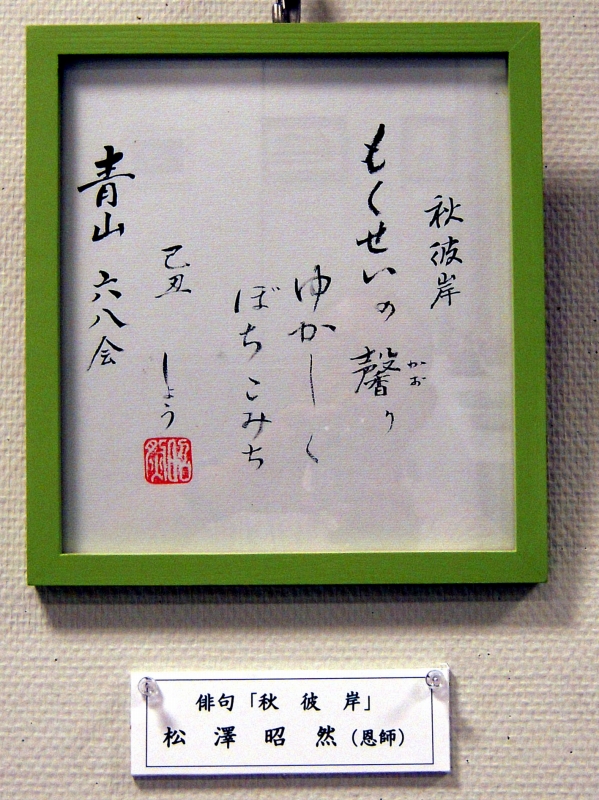 秋彼岸
もくせいの馨り
かお
ゆかしく
ぼちこみち
己丑 しょう
青山 六八会
俳句「秋 彼 岸」
松 澤 昭 然(恩師)